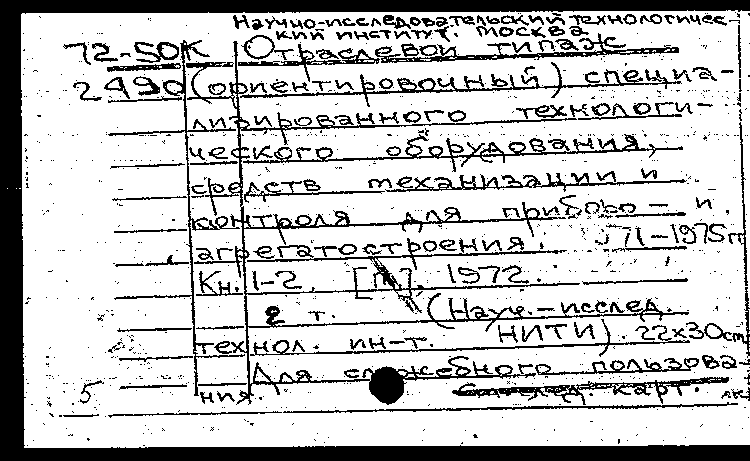 Научно-исследовательский технологичес-
кий институт. Москва
72-50К Отраслевой типаж
2490 (ориентировочный) специа-
лизированного технологи-
ческого оборудования,
средств механизации и
контроля для приборо- и
агрегатостроения. 1971-1975гг
Кн. 1-2. [М], 1972.
2 т. (Науч.-исслед.
технол. ин-т. НИТИ). 22х30см
Для служебного пользова-
5 ния. См. след. карт.